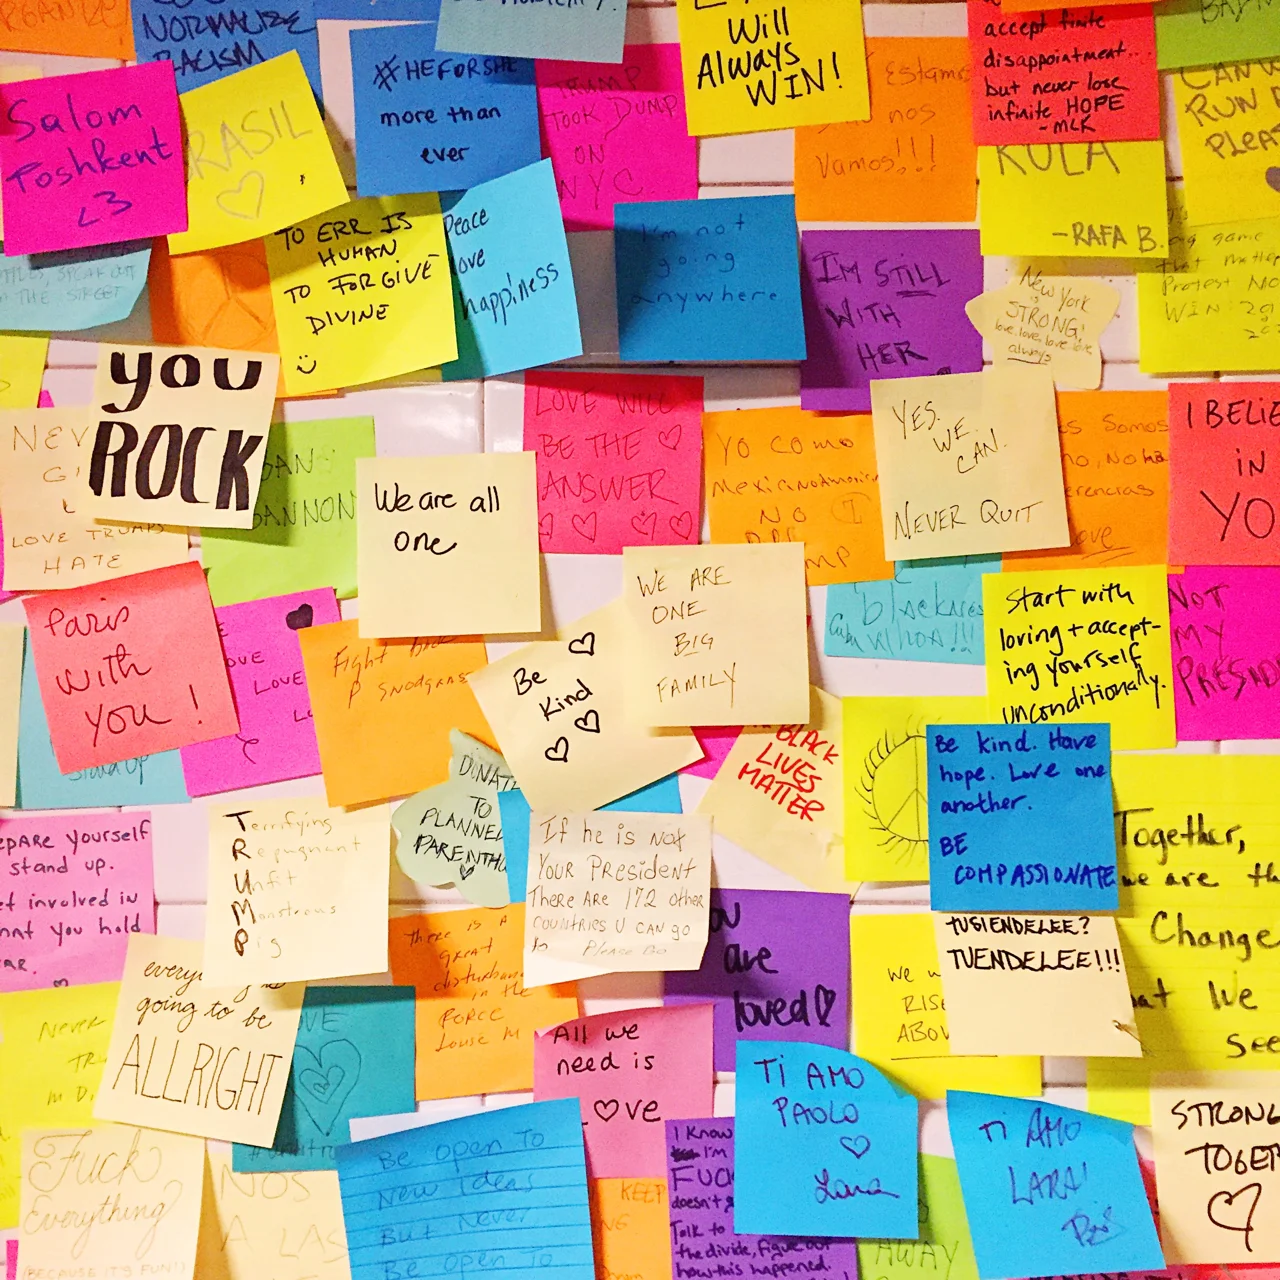 NORMALIZE
RACISM
#HEFORSHE
more than
ever
Will
Always
WIN!
accept finite
disappointment...
but never lose
infinite HOPE
-MLK
Salom
Toshkent
<3
RASIL
TRUMP
TOOK DUMP
ON
NYC
Estamos
nos
Vamos!!!
RUN
KULA
-RAFA B.
TO ERR IS
HUMAN
TO FORGIVE
DIVINE
Peace
ove
happiness
I'm not
going
anywhere.
I'M STILL
WITH
HER
New York
STRONG!
love, love, love, love
always
game
Protest
WIN
SPEAK OUT
THE STREET
YOU
ROCK
NEV
LOVE TRUMPS
HATE
BANNON
We are all
one
LOVE WILL
BE THE
ANSWER
YO COMO
NO
YES.
WE
CAN.
NEVER QUIT
Somos
I BELIE
iN
YO
Paris
with
you!
OVE
LOVE
Fight
Be
Kind
WE ARE
ONE
BIG
FAMILY
Start with
loving + accept-
ing yourself
unconditionally.
NOT
MY
PRESID
stand up
BLACK
LIVES
MATTER
DONATE
TO
PLANNED
PARENTHO
Be kind. Have
hope. Love one
another.
BE
COMPASSIONATE
Together,
we are the
Change
at We
see
EPARE YOURSELF
stand up.
et involved in
hat you hold
Terrifying
Repugnant
Unfit
Monstrous
Pig
If he is not
YOUR President
There Are 172 other
countries U can go
to Please Go
there is a
great
disturbance
in the
Force
are
loved
TUSIENDELEE?
TUENDELEE!!!
we w
RISE
ABOV
going to be
ALLRIGHT
Never
All we
need is
Love
TI AMO
PAOLO
Lara
TI AMO
LARA!
STRONG
TOGET
Fuck
Everything
(BECAUSE IT'S FUN!)
NOS
A LAS
Be open to
New Ideas
But Never
Be Open To
KEEP
I Know
I'm
FUC
doesn't
Talk to
the divide, figure out
how this happened.
AWAY